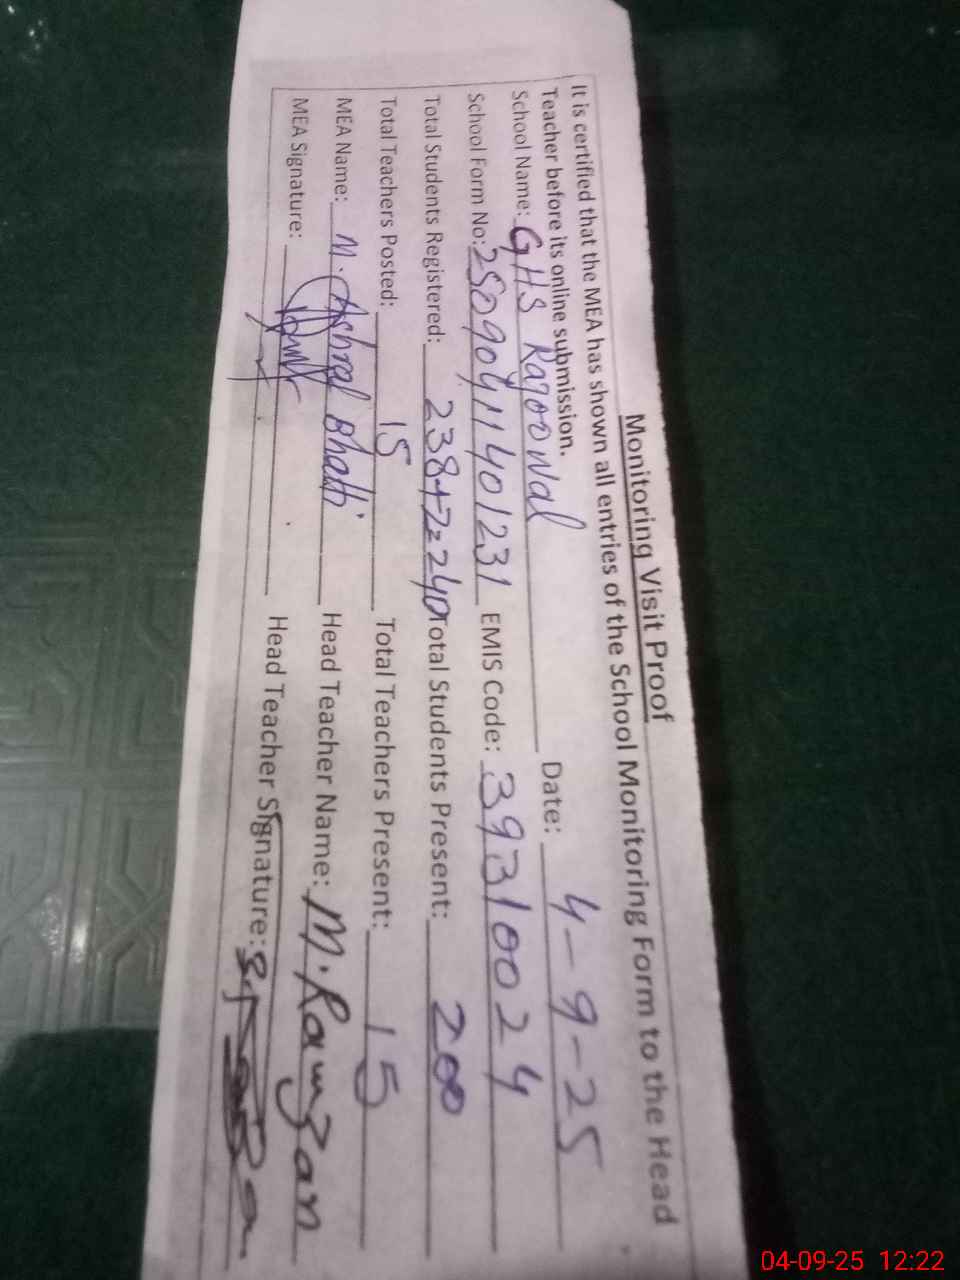 Monitoring Visit Proof
It is certified that the MEA has shown all entries of the School Monitoring Form to the Head
Teacher before its online submission.
School Name: GHS Ragoowal Date: 4-9-25
School Form No: 25090411401231 EMIS Code: 39310024
Total Students Registered: 238+2=240 Total Students Present: 200
Total Teachers Posted: 15 Total Teachers Present: 15
MEA Name: M. Ashraf Bhatti Head Teacher Name: M. Ramzan
MEA Signature: Head Teacher Signature:
04-09-25 12:22